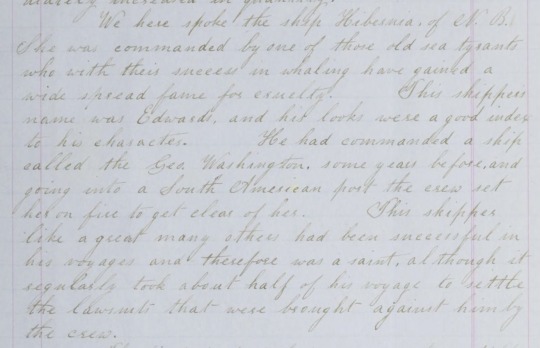 increased in quantity.
We here spoke the ship Hibernia, of N. B.
She was commanded by one of those old sea tyrants
who with their success in whaling have gained a
wide spread fame for cruelty. This skippers
name was Edwards, and his looks were a good index
to his character. He had commanded a ship
called the Geo. Washington, some years before, and
going into a South American port the crew set
her on fire to get clear of her. This skipper
like a great many others had been successful in
his voyages and therefore was a saint, although it
regularly took about half of his voyage to settle
the lawsuits that were brought against him by
the crew.